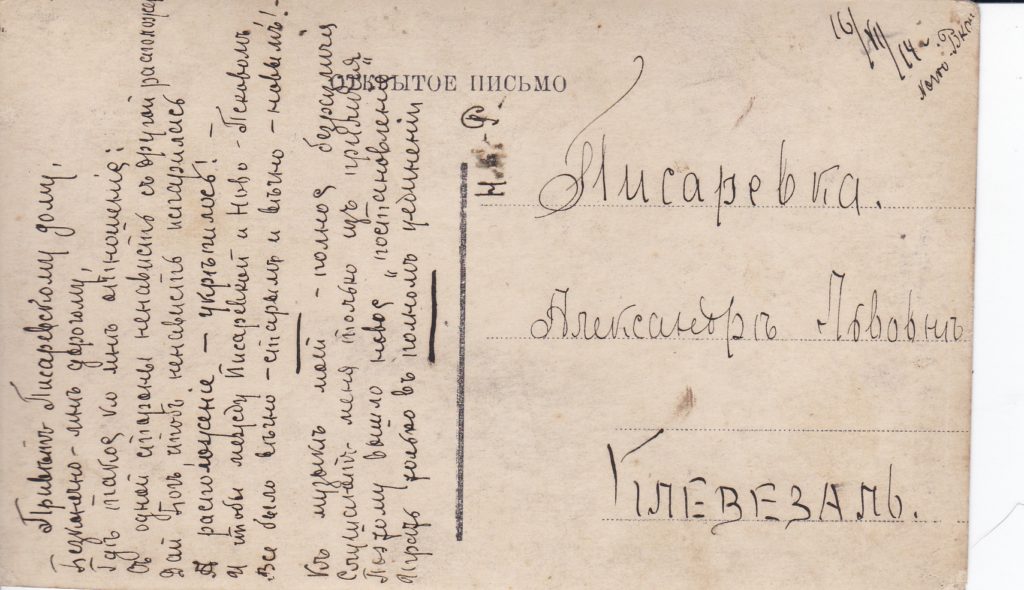 ОТКРЫТОЕ ПИСЬМО
16/XII/14 г.
Ново-
Привѣтъ Писаревскому дому,
Безконечно-мнѣ дорогому,
Гдѣ такое ко мнѣ отношенія:
Съ одной стороны ненависть съ другой расположе
Дай Богъ чтобъ ненависть испарилась
А расположеніе – укрѣпилось! –
И чтобы между Писаревкой и Ново-Псковомъ
Все было вѣчно-старымъ и вѣчно-новымъ! –
Къ музыкѣ моей – полное безразличіе
Слушаютъ меня только изъ приличія
Поэтому вышло новое „постановленіе"
Играть только въ полномъ уединеніи
Писаревка.
Александръ Львовнѣ
ГІЛЕВЕЗАЛЬ.